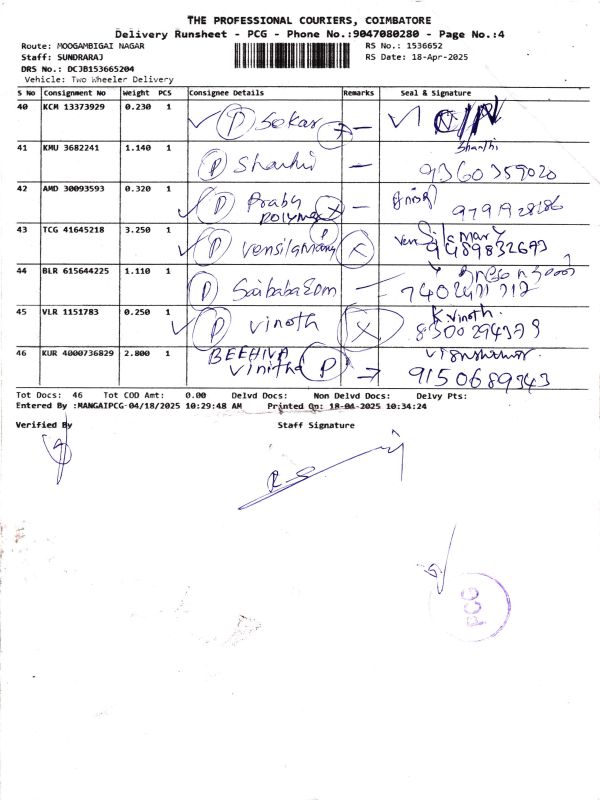 THE PROFESSIONAL COURIERS, COIMBATORE
Delivery Runsheet - PCG - Phone No.:9047080280 - Page No.:4
Route: MOOGAMBIGAI NAGAR RS No.: 1536652
Staff: SUNDRARAJ RS Date: 18-Apr-2025
DRS No.: DCJB153665204
Vehicle: Two Wheeler Delivery
S No Consignment No Weight PCS Consignee Details Remarks Seal & Signature
40 KCM 13373929 0.230 1 P Sekar
41 KMU 3682241 1.140 1 P Shanthi Shanthi
9360359020
42 AMD 30093593 0.320 1 P Prabu
POLYMER X
43 TCG 41645218 3.250 1 P vensilamary P X
9489832693
44 BLR 615644225 1.110 1 P Saibaba Eom
45 VLR 1151783 0.250 1 P vinoth X K.Vinoth
8300294379
46 KUR 4000736829 2.800 1 BEEHIVA
vinitha P
9150689343
Tot Docs: 46 Tot COD Amt: 0.00 Delvd Docs: Non Delvd Docs: Delvy Pts:
Entered By :MANGAIPCG-04/18/2025 10:29:48 AM Printed On: 18-04-2025 10:34:24
Verified By Staff Signature
PCG